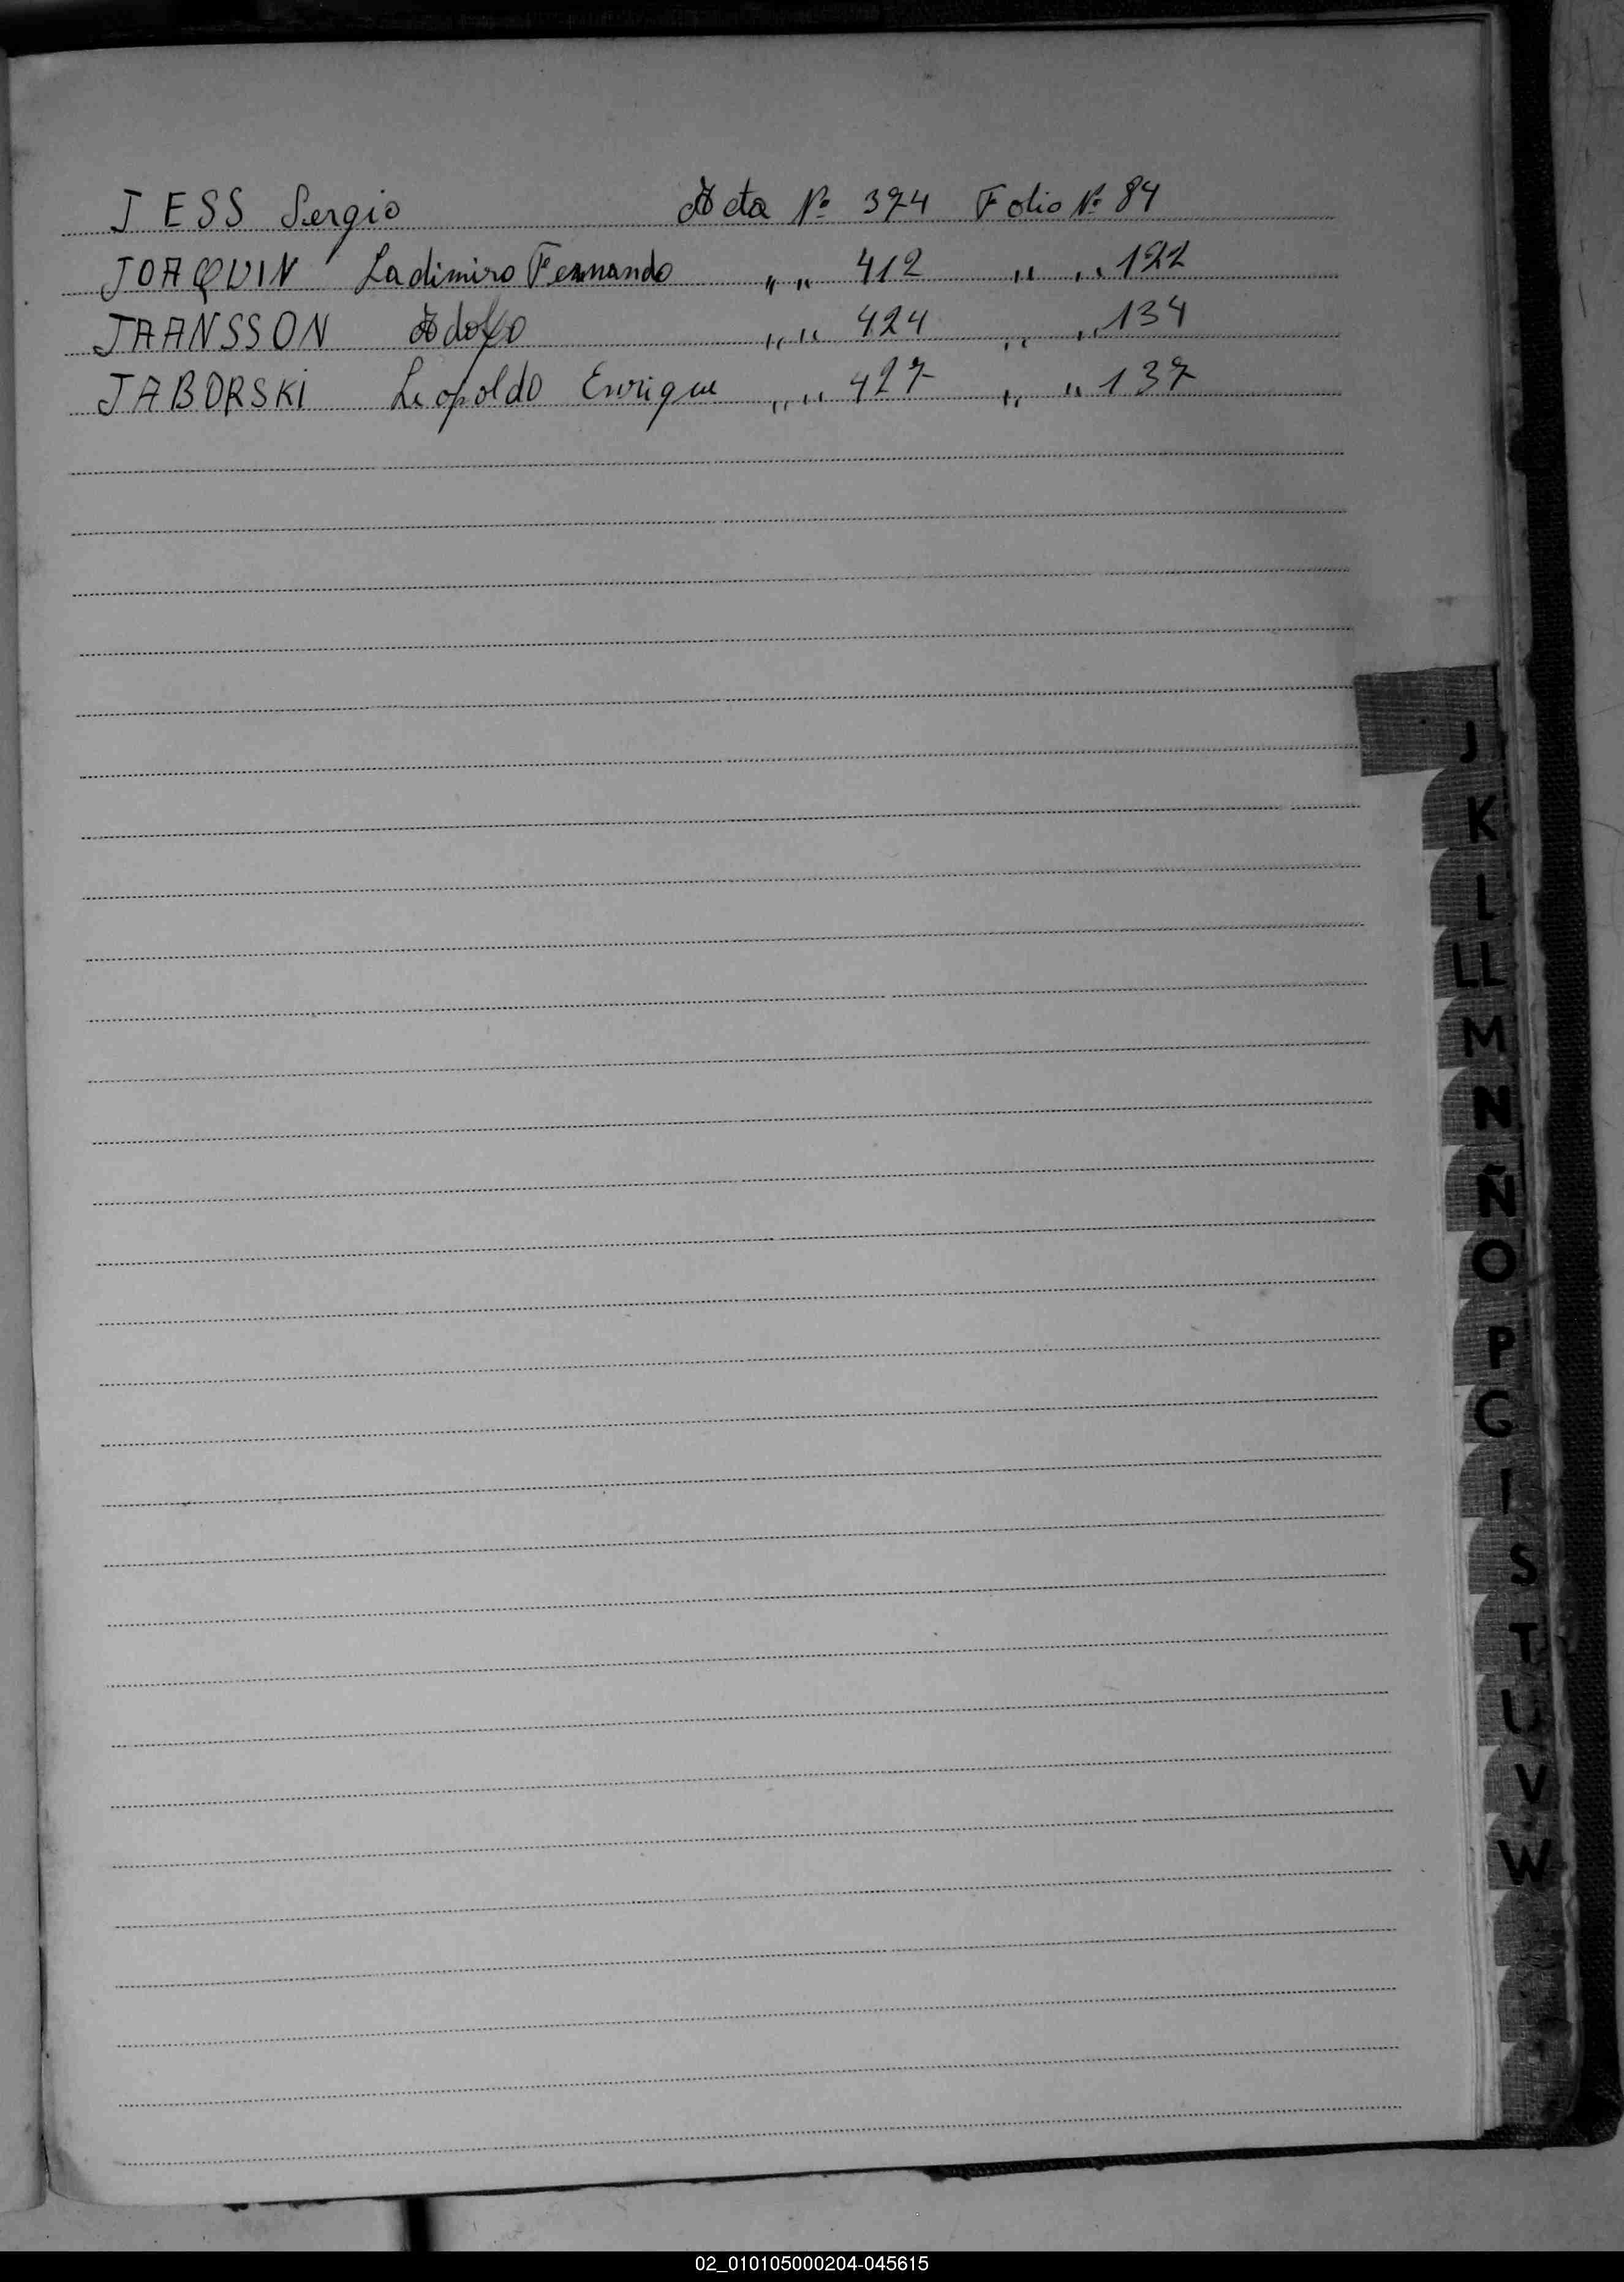 JESS Sergio Acta Nº 374 Folio Nº 84
JOAQUIN Ladimiro Fernando " " 412 " " 122
JAANSSON Adolfo " " 424 " " 134
JABORSKI Leopoldo Enrique " " 427 " " 137
J
K
L
LL
M
N
Ñ
O
P
S
T
U
V
W
02_010105000204-045615